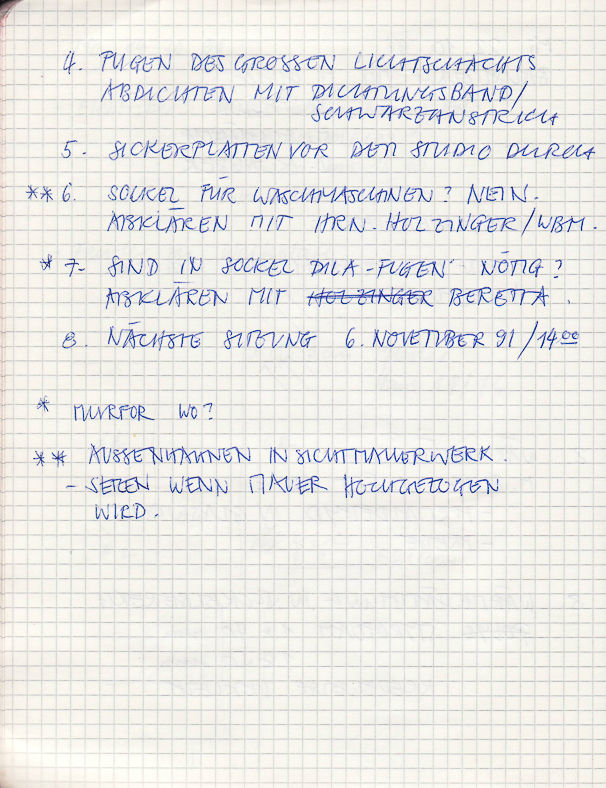 4. FUGEN DES GROSSEN LICHTSCHACHTS
ABDICHTEN MIT DICHTUNGSBAND/
SCHWARZANSTRICH
5. SICKERPLATTEN VOR DEM STUDIO DURCH
** 6. SOCKEL FÜR WASCHMASCHINEN? NEIN.
ABKLÄREN MIT HRN. HOLZINGER/WBM.
* 7- SIND IN SOCKEL DILA-FUGEN NÖTIG?
ABKLÄREN MIT HOLZINGER BERETTA.
8. NÄCHSTE SITZUNG 6. NOVEMBER 91/14 00
* MURFOR WO?
** AUSSENHAHNEN IN SICHTMAUERWERK.
- SETZEN WENN MAUER HOCHGEZOGEN
WIRD.